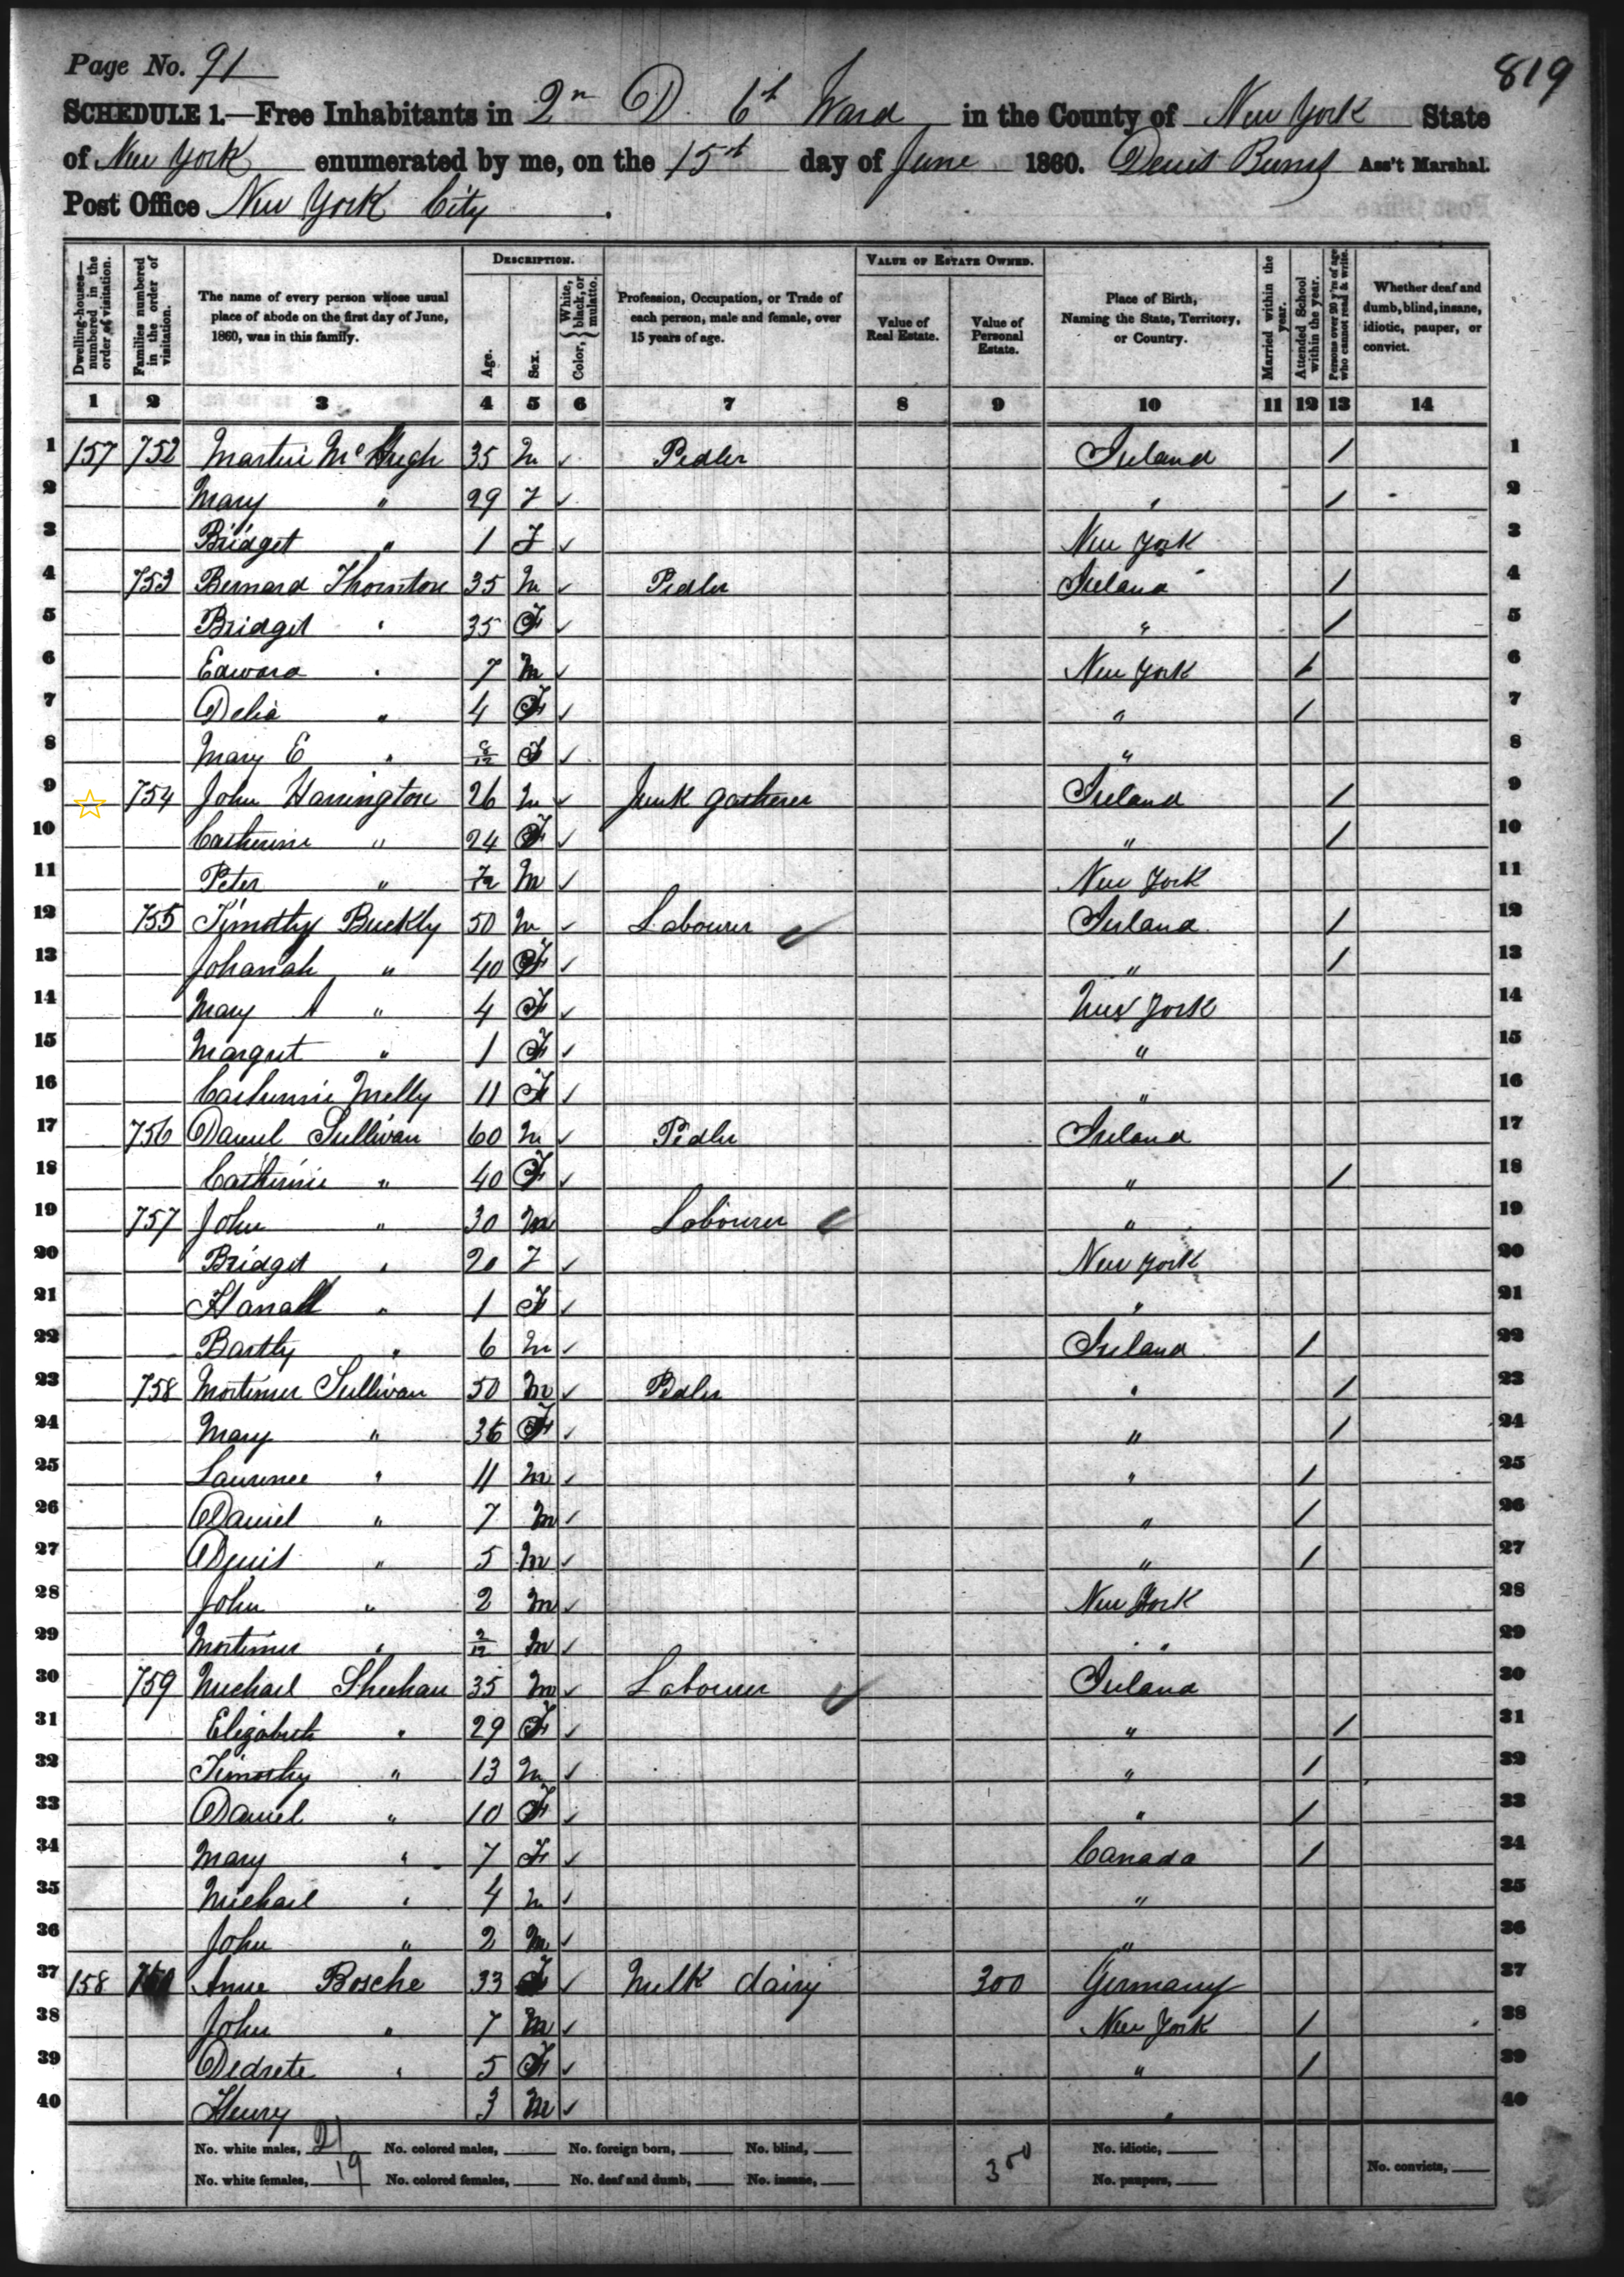 Page No. 91
819
SCHEDULE 1.—Free Inhabitants in 2n D. 6t Ward in the County of New York State
of New York enumerated by me, on the 15th day of June 1860. Denis Burns Ass't Marshal.
Post Office New York City.
Dwelling-houses—numbered in the order of visitation.
Families numbered in the order of visitation.
The name of every person whose usual place of abode on the first day of June, 1860, was in this family.
DESCRIPTION.
Age.
Sex.
Color, { White, black, or mulatto.
Profession, Occupation, or Trade of each person, male and female, over 15 years of age.
VALUE OF ESTATE OWNED.
Value of Real Estate.
Value of Personal Estate.
Place of Birth, Naming the State, Territory, or Country.
Married within the year.
Attended School within the year.
Persons over 20 y'rs of age who cannot read & write.
Whether deaf and dumb, blind, insane, idiotic, pauper, or convict.
1 2 3 4 5 6 7 8 9 10 11 12 13 14
1 157 752 Martin McHugh 35 M ✓ Pedler Ireland / 1
2 Mary " 29 F ✓ " / 2
3 Bridget " 1 F ✓ New York 3
4 753 Bernard Thornton 35 M ✓ Pedler Ireland / 4
5 Bridget " 35 F ✓ " / 5
6 Edward " 7 M ✓ New York / 6
7 Delia " 4 F ✓ " / 7
8 Mary E " 8/12 F ✓ " 8
9 754 John Harrington 26 M ✓ Junk gatherer Ireland / 9
10 Catherine " 24 F ✓ " / 10
11 Peter " 7/12 M ✓ New York 11
12 755 Timothy Buckly 50 M ✓ Labourer ✓ Ireland / 12
13 Johanah " 40 F ✓ " / 13
14 Mary A " 4 F ✓ New York 14
15 Margret " 1 F ✓ " 15
16 Catherine Melly 11 F ✓ " 16
17 756 Daniel Sullivan 60 M ✓ Pedler Ireland 17
18 Catherine " 40 F ✓ " / 18
19 757 John " 30 M Labourer ✓ " 19
20 Bridget " 20 F ✓ New York 20
21 Hanah " 1 F ✓ " 21
22 Bartly " 6 M ✓ Ireland / 22
23 758 Mortimer Sullivan 50 M ✓ Pedler " / 23
24 Mary " 36 F ✓ " / 24
25 Laurence " 11 M ✓ " / 25
26 Daniel " 7 M ✓ " / 26
27 Denis " 5 M ✓ " / 27
28 John " 2 M ✓ New York 28
29 Mortimer " 2/12 M ✓ " 29
30 759 Michael Sheehan 35 M ✓ Labourer ✓ Ireland 30
31 Elizabeth " 29 F ✓ " / 31
32 Timothy " 13 M ✓ " / 32
33 Daniel " 10 F ✓ " / 33
34 Mary " 7 F ✓ Canada / 34
35 Michael " 4 M ✓ " 35
36 John " 2 M ✓ " 36
37 158 Anne Bosche 33 F ✓ Milk dairy 300 Germany 37
38 John " 7 M ✓ New York / 38
39 Dedrete " 5 F ✓ " / 39
40 Henry 3 M ✓ " 40
No. white males, 21 No. colored males, No. foreign born, No. blind, No. idiotic,
No. white females, 19 No. colored females, No. deaf and dumb, No. insane, 300 No. paupers, No. convicts,